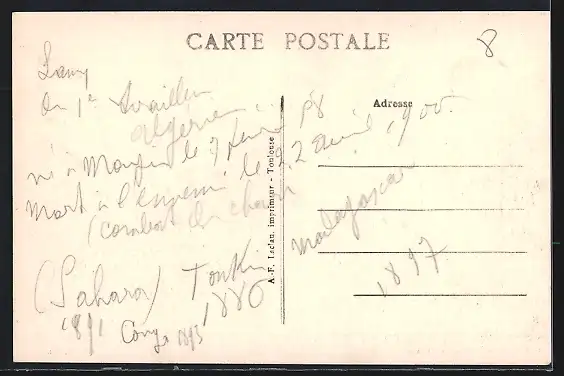 CARTE POSTALE
8
Lamy
du 1er Tirailleurs
algérien
né à Mougins le 7 février 58
Mort à l'ennemi le 22 avril 1900
(combat du Chari
Adresse
A.-F. Leclau, imprimeur - Toulouse
Madagascar
1897
(Sahara) Tonkin
1891 Congo 1893 1886